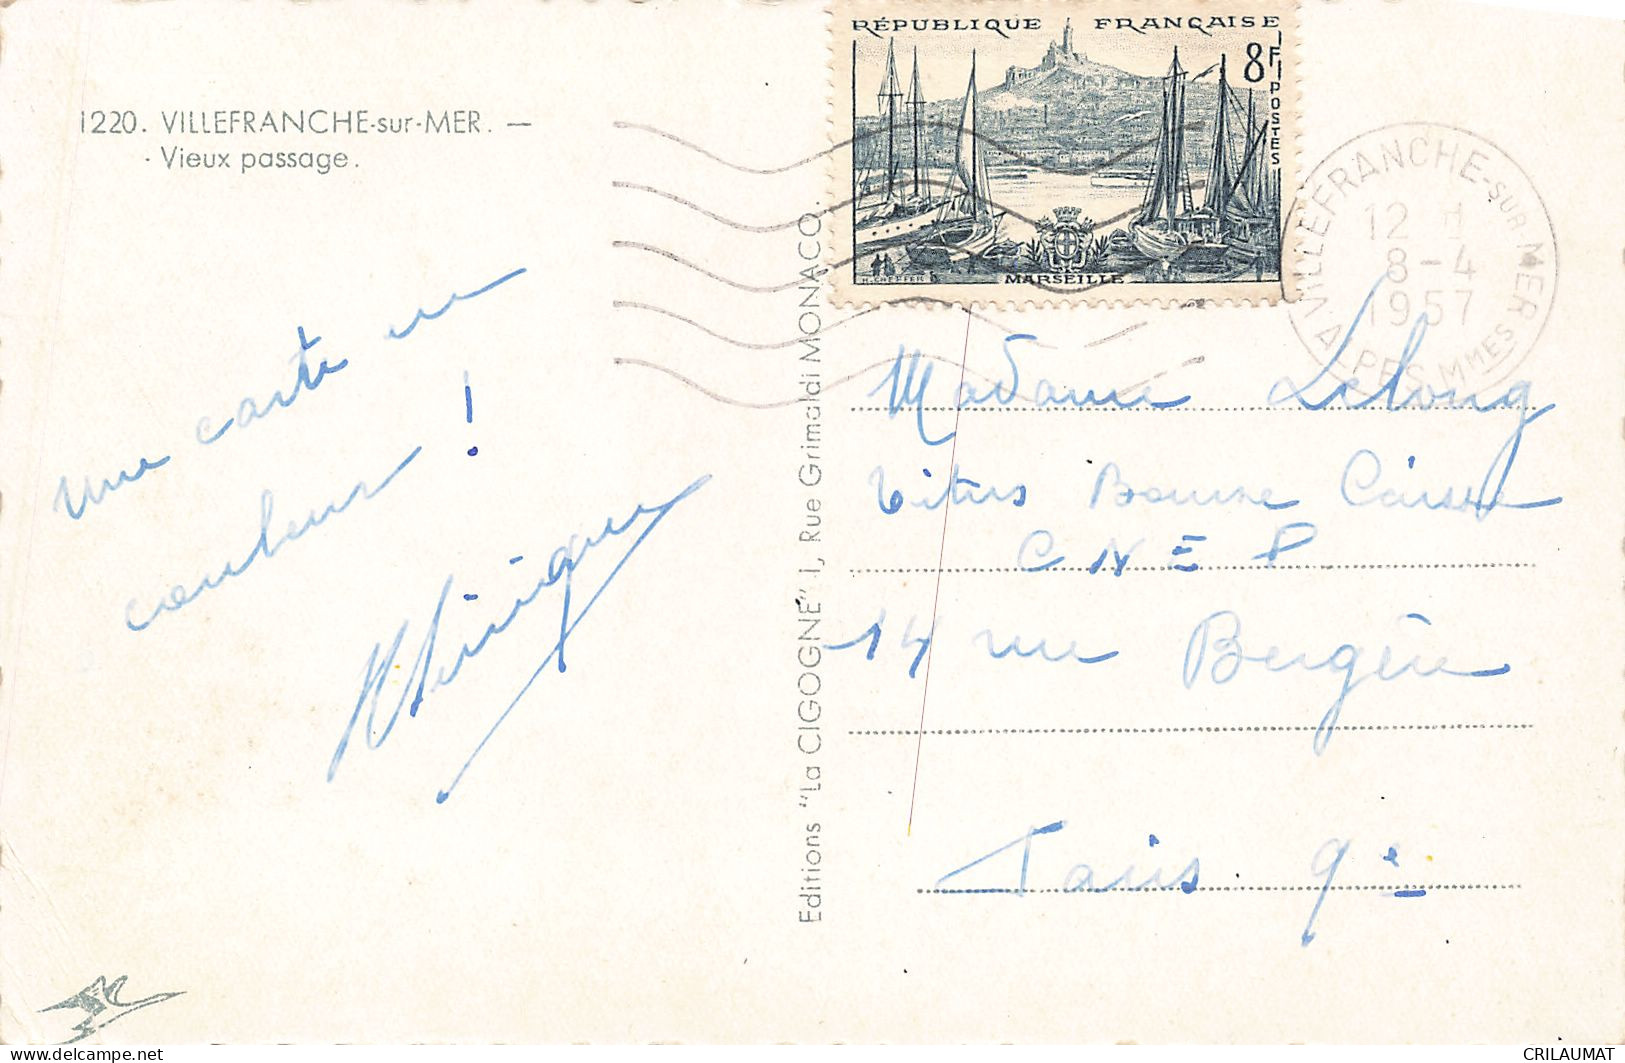 1220. VILLEFRANCHE-sur-MER. —
Vieux passage.
RÉPUBLIQUE FRANÇAISE
8F
POSTES
MARSEILLE
VILLEFRANCHE-SUR-MER
12 H
8-4
1957
ALPES MMES
une carte en
couleurs !
Editions "La CIGOGNE" I, Rue Grimaldi MONACO.
Madame Lelong
Titres Bourse Caisse
C N E P
14 rue Bergère
Paris 9e
CRILAUMAT